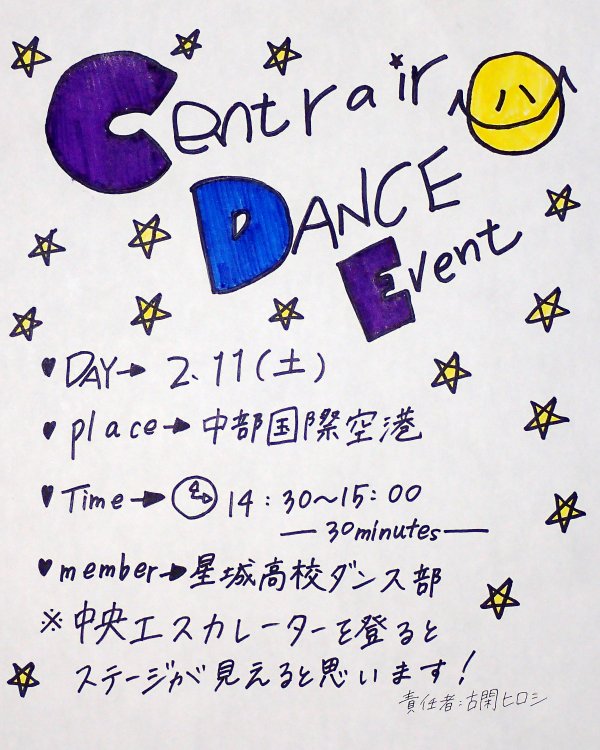 Centrair
DANCE
Event
♥DAY→ 2.11(土)
♥place→中部国際空港
♥Time→ 14:30〜15:00
―30minutes―
♥member→星城高校ダンス部
※中央エスカレーターを登ると
ステージが見えると思います!
責任者:古閑ヒロシ